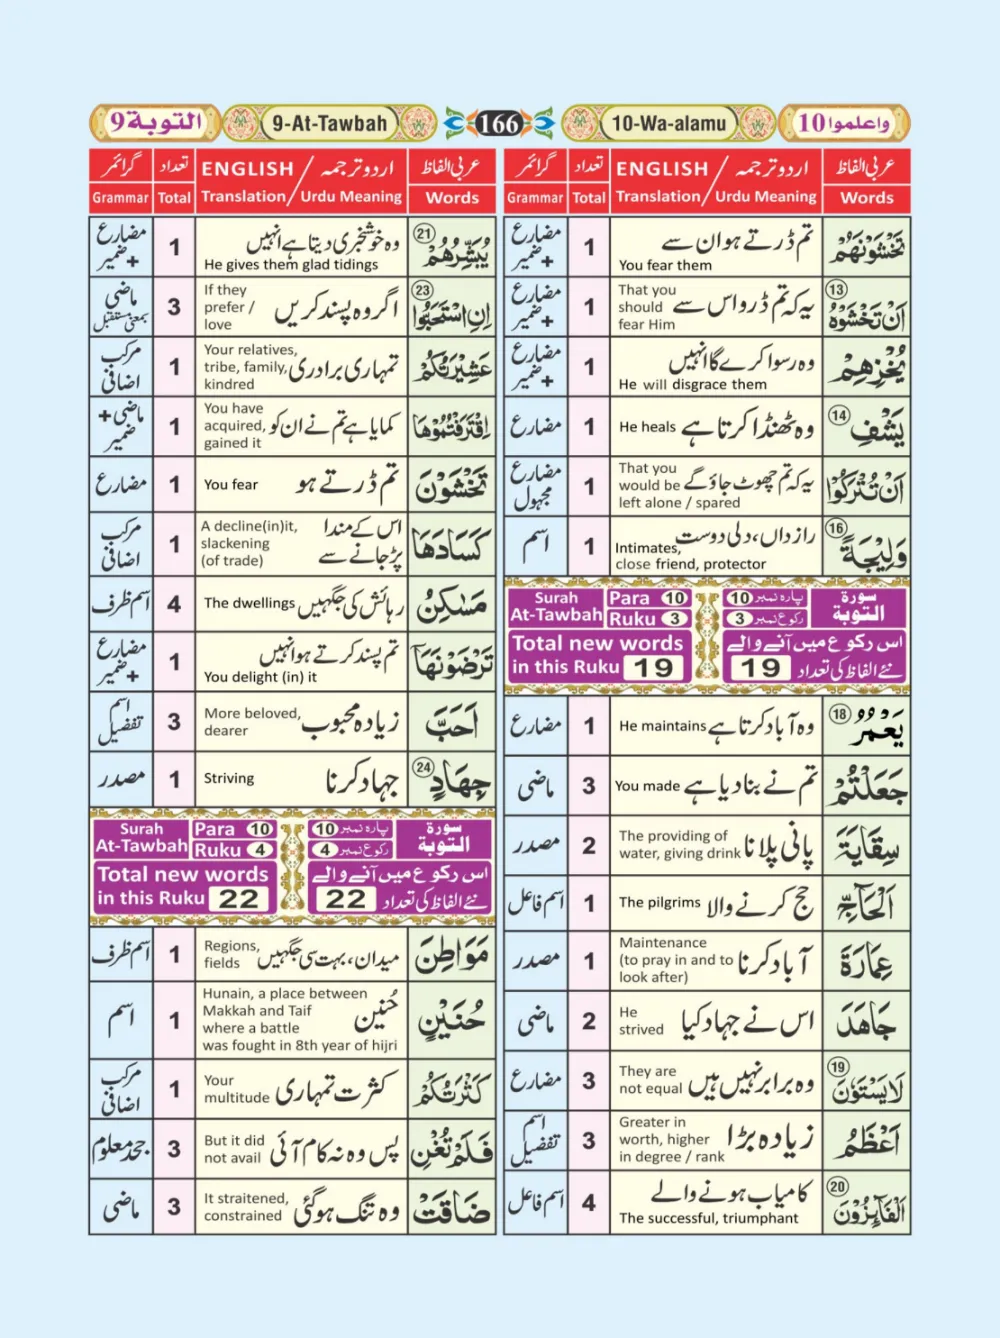 التوبة 9
9-At-Tawbah
166
10-Wa-alamu
واعلموا 10
عربی الفاظ
اردو ترجمہ / ENGLISH
تعداد
گرائمر
Words
Translation / Urdu Meaning
Total
Grammar
تَخْشَوْنَهُمْ
تم ڈرتے ہو ان سے
You fear them
1
مضارع + ضمیر
13
اَنْ تَخْشَوْهُ
یہ کہ تم ڈرو اس سے
That you should fear Him
1
مضارع + ضمیر
يُخْزِهِمْ
وہ رسوا کرے گا انہیں
He will disgrace them
1
مضارع + ضمیر
14
يَشْفِ
وہ ٹھنڈا کرتا ہے
He heals
1
مضارع
اَنْ تُتْرَكُوْا
یہ کہ تم چھوٹ جاؤ گے
That you would be left alone / spared
1
مضارع مجہول
16
وَلِيْجَةً
رازداں، دلی دوست
Intimates, close friend, protector
1
اسم
Surah At-Tawbah
Para 10
Ruku 3
پارہ نمبر 10
رکوع نمبر 3
سورة التوبة
Total new words in this Ruku 19
اس رکوع میں آنے والے نئے الفاظ کی تعداد 19
18
يَعْمُرُ
وہ آباد کرتا ہے
He maintains
1
مضارع
جَعَلْتُمْ
تم نے بنا دیا ہے
You made
3
ماضی
سِقَايَةَ
پانی پلانا
The providing of water, giving drink
2
مصدر
اَلْحَآجِّ
حج کرنے والا
The pilgrims
1
اسم فاعل
عِمَارَةَ
آباد کرنا
Maintenance (to pray in and to look after)
1
مصدر
جَاهَدَ
اس نے جہاد کیا
He strived
2
ماضی
19
لَا يَسْتَوٗنَ
وہ برابر نہیں ہیں
They are not equal
3
مضارع
اَعْظَمُ
زیادہ بڑا
Greater in worth, higher in degree / rank
3
اسم تفضیل
20
اَلْفَآئِزُوْنَ
کامیاب ہونے والے
The successful, triumphant
4
اسم فاعل
عربی الفاظ
اردو ترجمہ / ENGLISH
تعداد
گرائمر
Words
Translation / Urdu Meaning
Total
Grammar
21
يُبَشِّرُهُمْ
وہ خوشخبری دیتا ہے انہیں
He gives them glad tidings
1
مضارع + ضمیر
23
اِنِ اسْتَحَبُّوا
اگر وہ پسند کریں
If they prefer / love
3
ماضی بمعنی مستقبل
عَشِيْرَتُكُمْ
تمہاری برادری
Your relatives, tribe, family, kindred
1
مرکب اضافی
اِقْتَرَفْتُمُوْهَا
کمایا ہے تم نے ان کو
You have acquired, gained it
1
ماضی + ضمیر
تَخْشَوْنَ
تم ڈرتے ہو
You fear
1
مضارع
كَسَادَهَا
اس کے مندا پڑ جانے سے
A decline(in)it, slackening (of trade)
1
مرکب اضافی
مَسٰكِنُ
رہائش کی جگہیں
The dwellings
4
اسم ظرف
تَرْضَوْنَهَا
تم پسند کرتے ہو انہیں
You delight (in) it
1
مضارع + ضمیر
اَحَبَّ
زیادہ محبوب
More beloved, dearer
3
اسم تفضیل
24
جِهَادٍ
جہاد کرنا
Striving
1
مصدر
Surah At-Tawbah
Para 10
Ruku 4
پارہ نمبر 10
رکوع نمبر 4
سورة التوبة
Total new words in this Ruku 22
اس رکوع میں آنے والے نئے الفاظ کی تعداد 22
مَوَاطِنَ
میدان، بہت سی جگہیں
Regions, fields
1
اسم ظرف
حُنَيْنٍ
حُنین
Hunain, a place between Makkah and Taif where a battle was fought in 8th year of hijri
1
اسم
كَثْرَتُكُمْ
کثرت تمہاری
Your multitude
1
مرکب اضافی
فَلَمْ تُغْنِ
پس وہ نہ کام آئی
But it did not avail
3
جحد معلوم
ضَاقَتْ
وہ تنگ ہو گئی
It straitened, constrained
3
ماضی